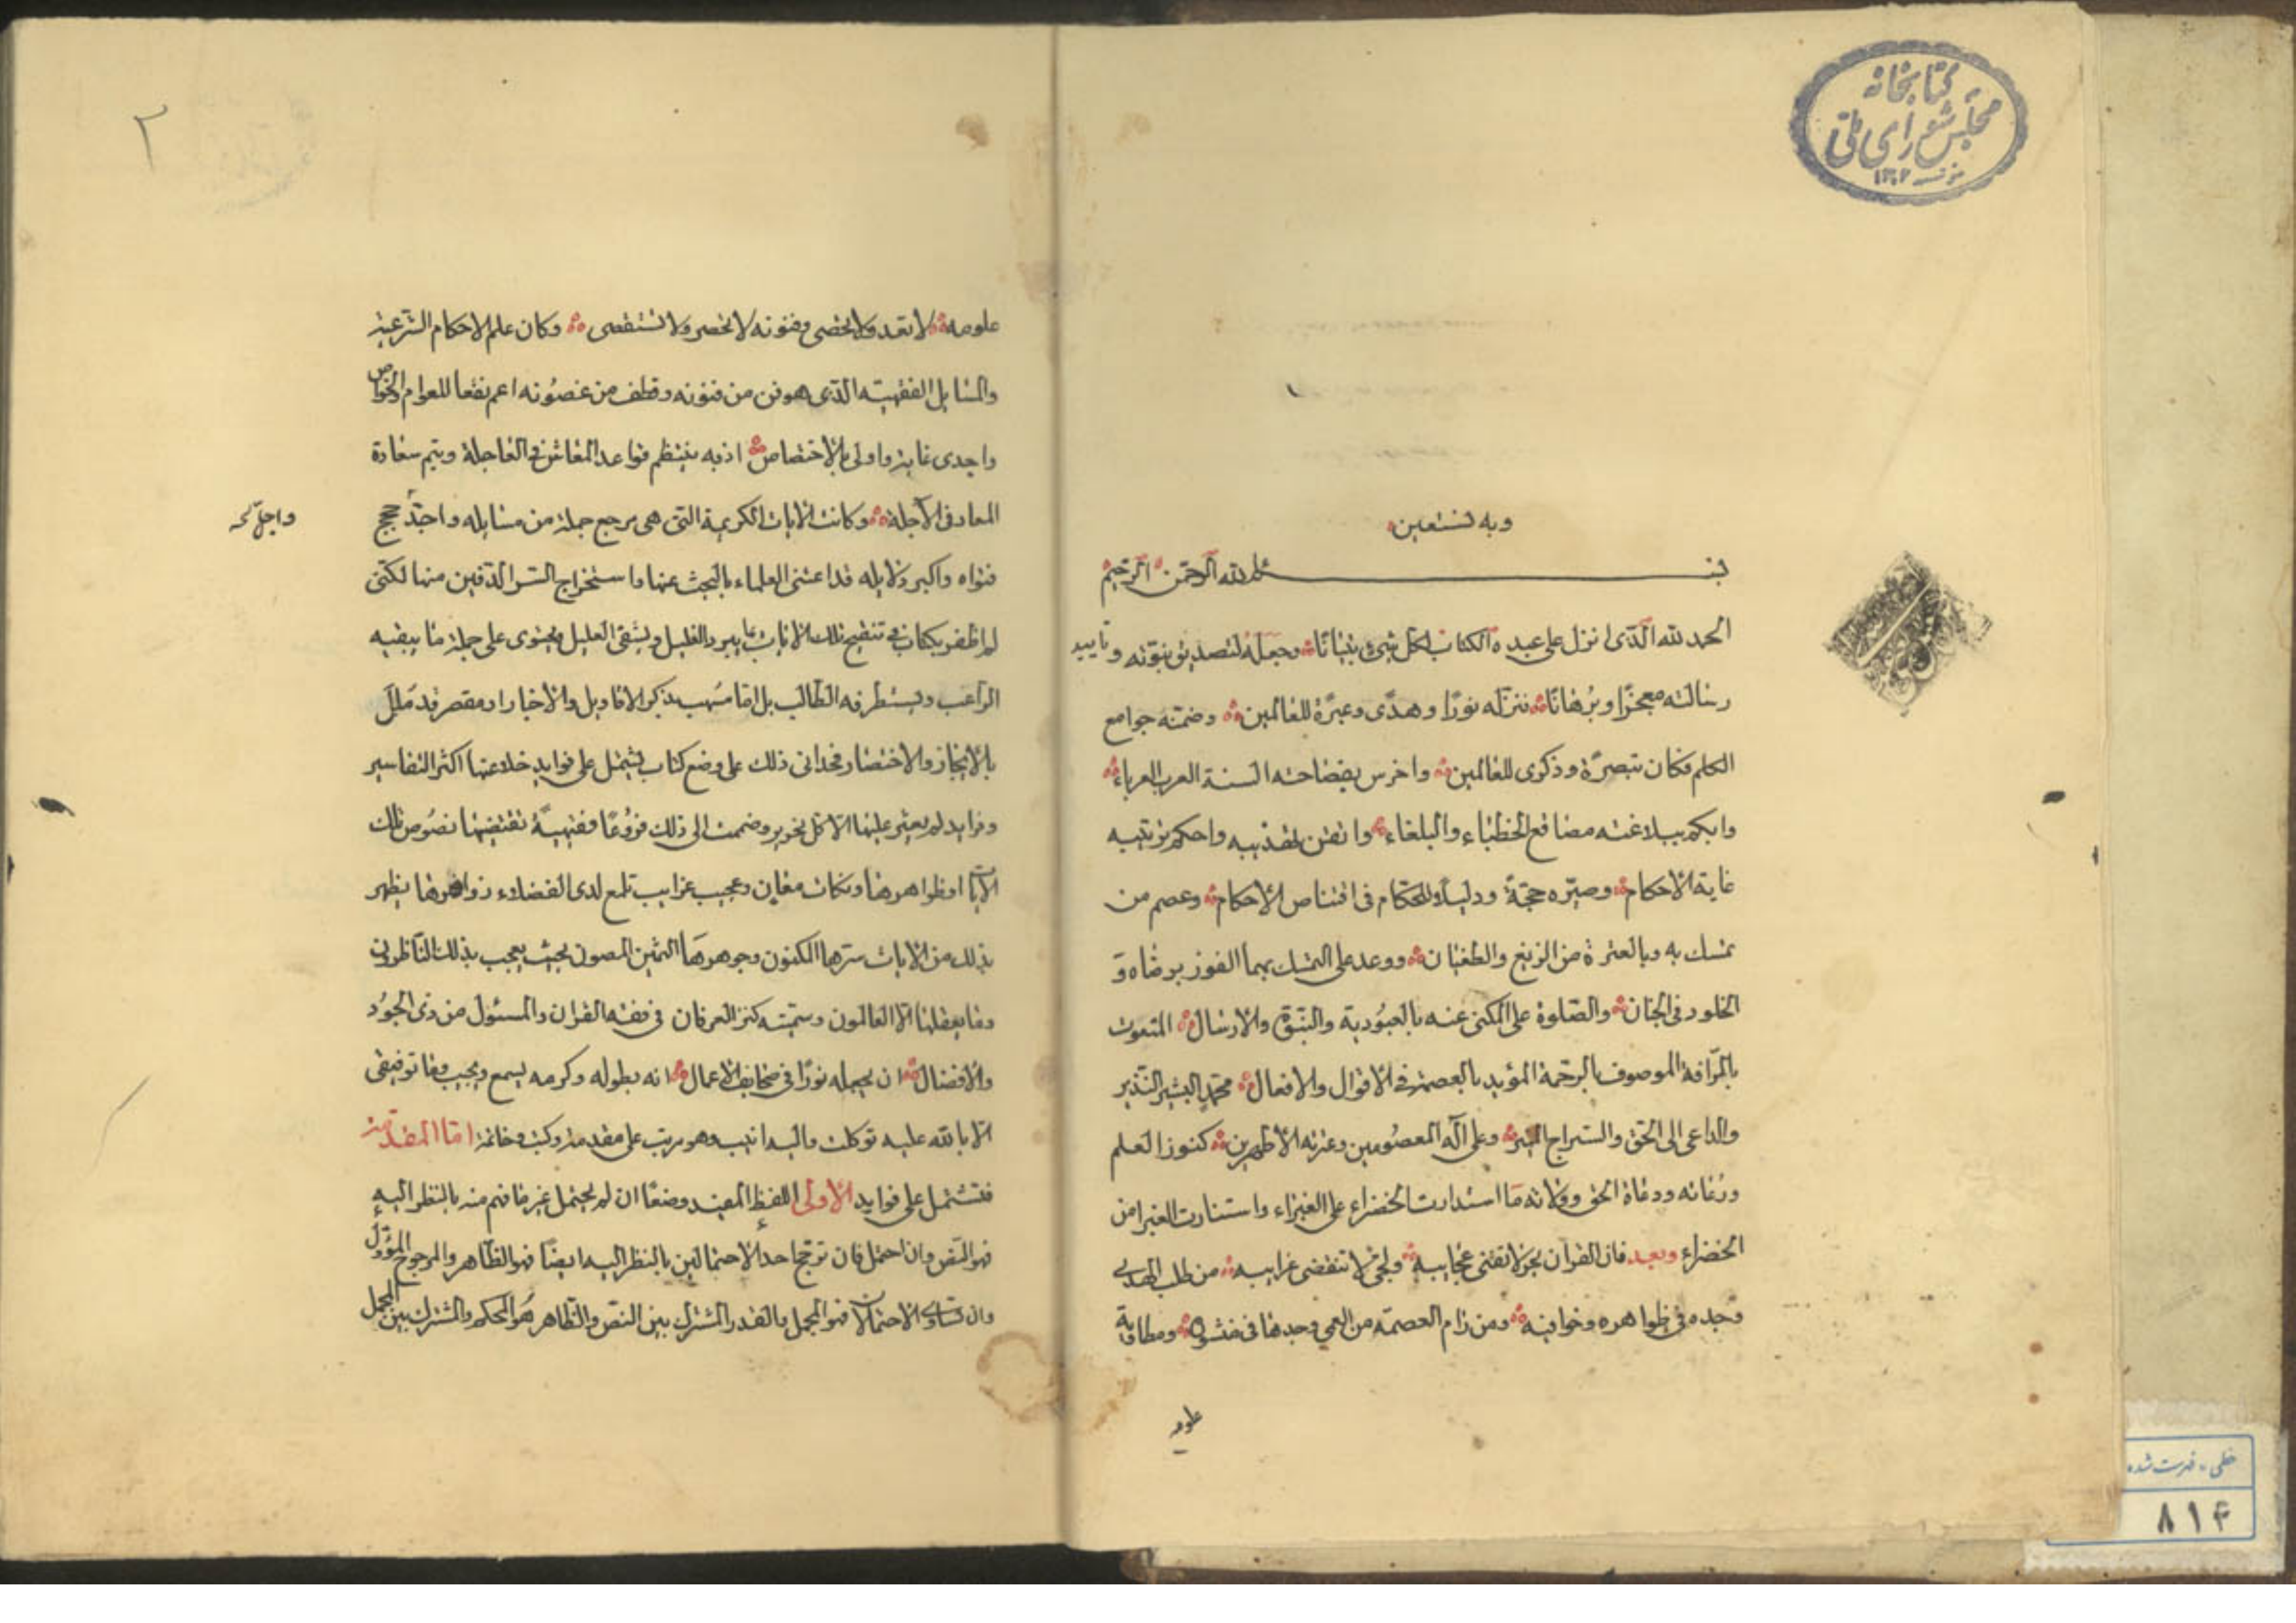 كتابخانه
مجلس شورای ملی
١٣٠٢
وبه نستعين
بسم الله الرحمن الرحيم
الحمد لله الذى انزل على عبده الكتاب لكل شئ تبيانا وجعله لتصديق نبوته وتاييد
رسالته معجزا وبرهانا ننزله نورا وهدى وعبرة للعالمين وضمنه جوامع
الكلم فكان تبصرة وذكرى للعالمين واخرس بفصاحته السنة العرب العرباء
وابكم ببلاغته مصاقع الخطباء والبلغاء واتقن تهذيبه واحكم ترتيبه
غاية الاحكام وصيره حجة ودليلا للحكام فى اقتناص الاحكام وعصم من
تمسك به وبالعترة من الزيغ والطغيان ووعد على التمسك بهما الفوز برضاه و
الخلود فى الجنان والصلوة على المكنى عنه بالعبودية والنبوة والارسال المنعوت
بالرافة الموصوف بالرحمة المؤيد بالعصمة فى الاقوال والافعال محمد البشير النذير
والداعى الى الحق والسراج المنير وعلى آله المعصومين وعترته الاطهرين كنوز العلم
ورعاته ودعاة الحق وولاته ما استدارت الخضراء على الغبراء واستنارت الغبرا من
الخضراء وبعد فان القران بحر لا تفنى عجايبه ولجى لا تنقضى غرايبه من طلب الهدى
وجده فى ظواهره وخوافيه ومن رام العصمة من العمى وجدها فى منشوره ومطاويه
علومه
٢
علومه لا تعد ولا تحصى وفنونه لا تحصر ولا تستقصى وكان علم الاحكام الشرعية
والمسايل الفقهيته الذى هو فن من فنونه وقطف من غصونه اعم نفعا للعوام والخواص
واجدى عايدة واولى بالاختصاص اذ به ينتظم قواعد المعاش فى العاجلة ويتم سعادة
المعاد فى الآجلة وكانت الايات الكريمة التى هى مرجع جملة من مسايله واجد حجج
واجل
فتواه واكبر دلايله قد اعتنى العلماء بالبحث عنها واستخراج السر الدفين منها لكنى
لم اظفر بكتاب فى تنقيح تلك الايات بما يبرد الغليل ويشفى العليل ويحتوى على جملة ما يبغيه
الراغب ويستطرفه الطالب بل اما مسهب بذكر الاقاويل والاخبار او مقصر قد ملل
بالايجاز والاختصار فحدانى ذلك على وضع كتاب يشتمل على فوايد خلا عنها اكثر التفاسير
وفرايد لم يعثر عليها الا كل نحرير وضممت الى ذلك فروعا فقهية تقتضيها نصوص تلك
الايات او ظواهرها ونكات معان وعجيب غرايب تلمع لدى الفضلاء زواهرها يظهر
بذلك من الايات سرها المكنون وجوهرها الثمين المصون بحيث يعجب بذلك الناظرون
وما يعقلها الا العالمون وسميته كنز العرفان فى فقه القران والمسئول من ذى الجود
والافضال ان يجعله نورا فى صحايف الاعمال انه بطوله وكرمه يسمع ويجيب وما توفيقى
الا بالله عليه توكلت واليه انيب وهو مرتب على مقدمة وكتب وخاتمة اما المقدمة
فتشتمل على فوايد الاولى اللفظ المفيد وضعا ان لم يحتمل غير ما فهم منه بالنظر اليه
فهو النص وان احتمل فان ترجح احد الاحتمالين بالنظر اليه ايضا فهو الظاهر والمرجوح المؤول
وان تساوى الاحتمالان فهو المجمل والقدر المشترك بين النص والظاهر هو المحكم والمشترك بين المجمل
خطی - فهرست شده
٨١٤